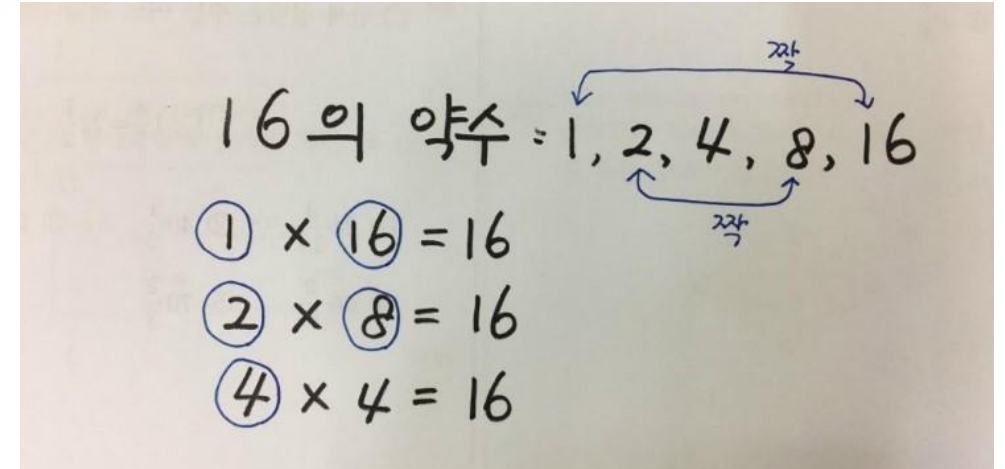 짝
16의 약수 : 1, 2, 4, 8, 16
짝
1 × 16 = 16
2 × 8 = 16
4 × 4 = 16